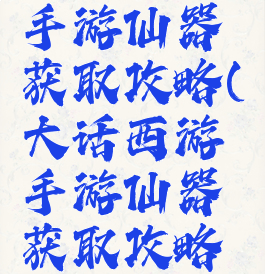 手游仙器
获取攻略(
大话西游
手游仙器
获取攻略